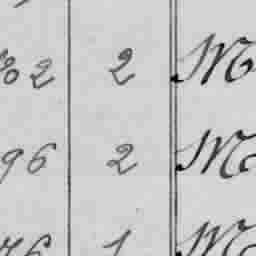 82 2 M
96 2 M
76 1 M